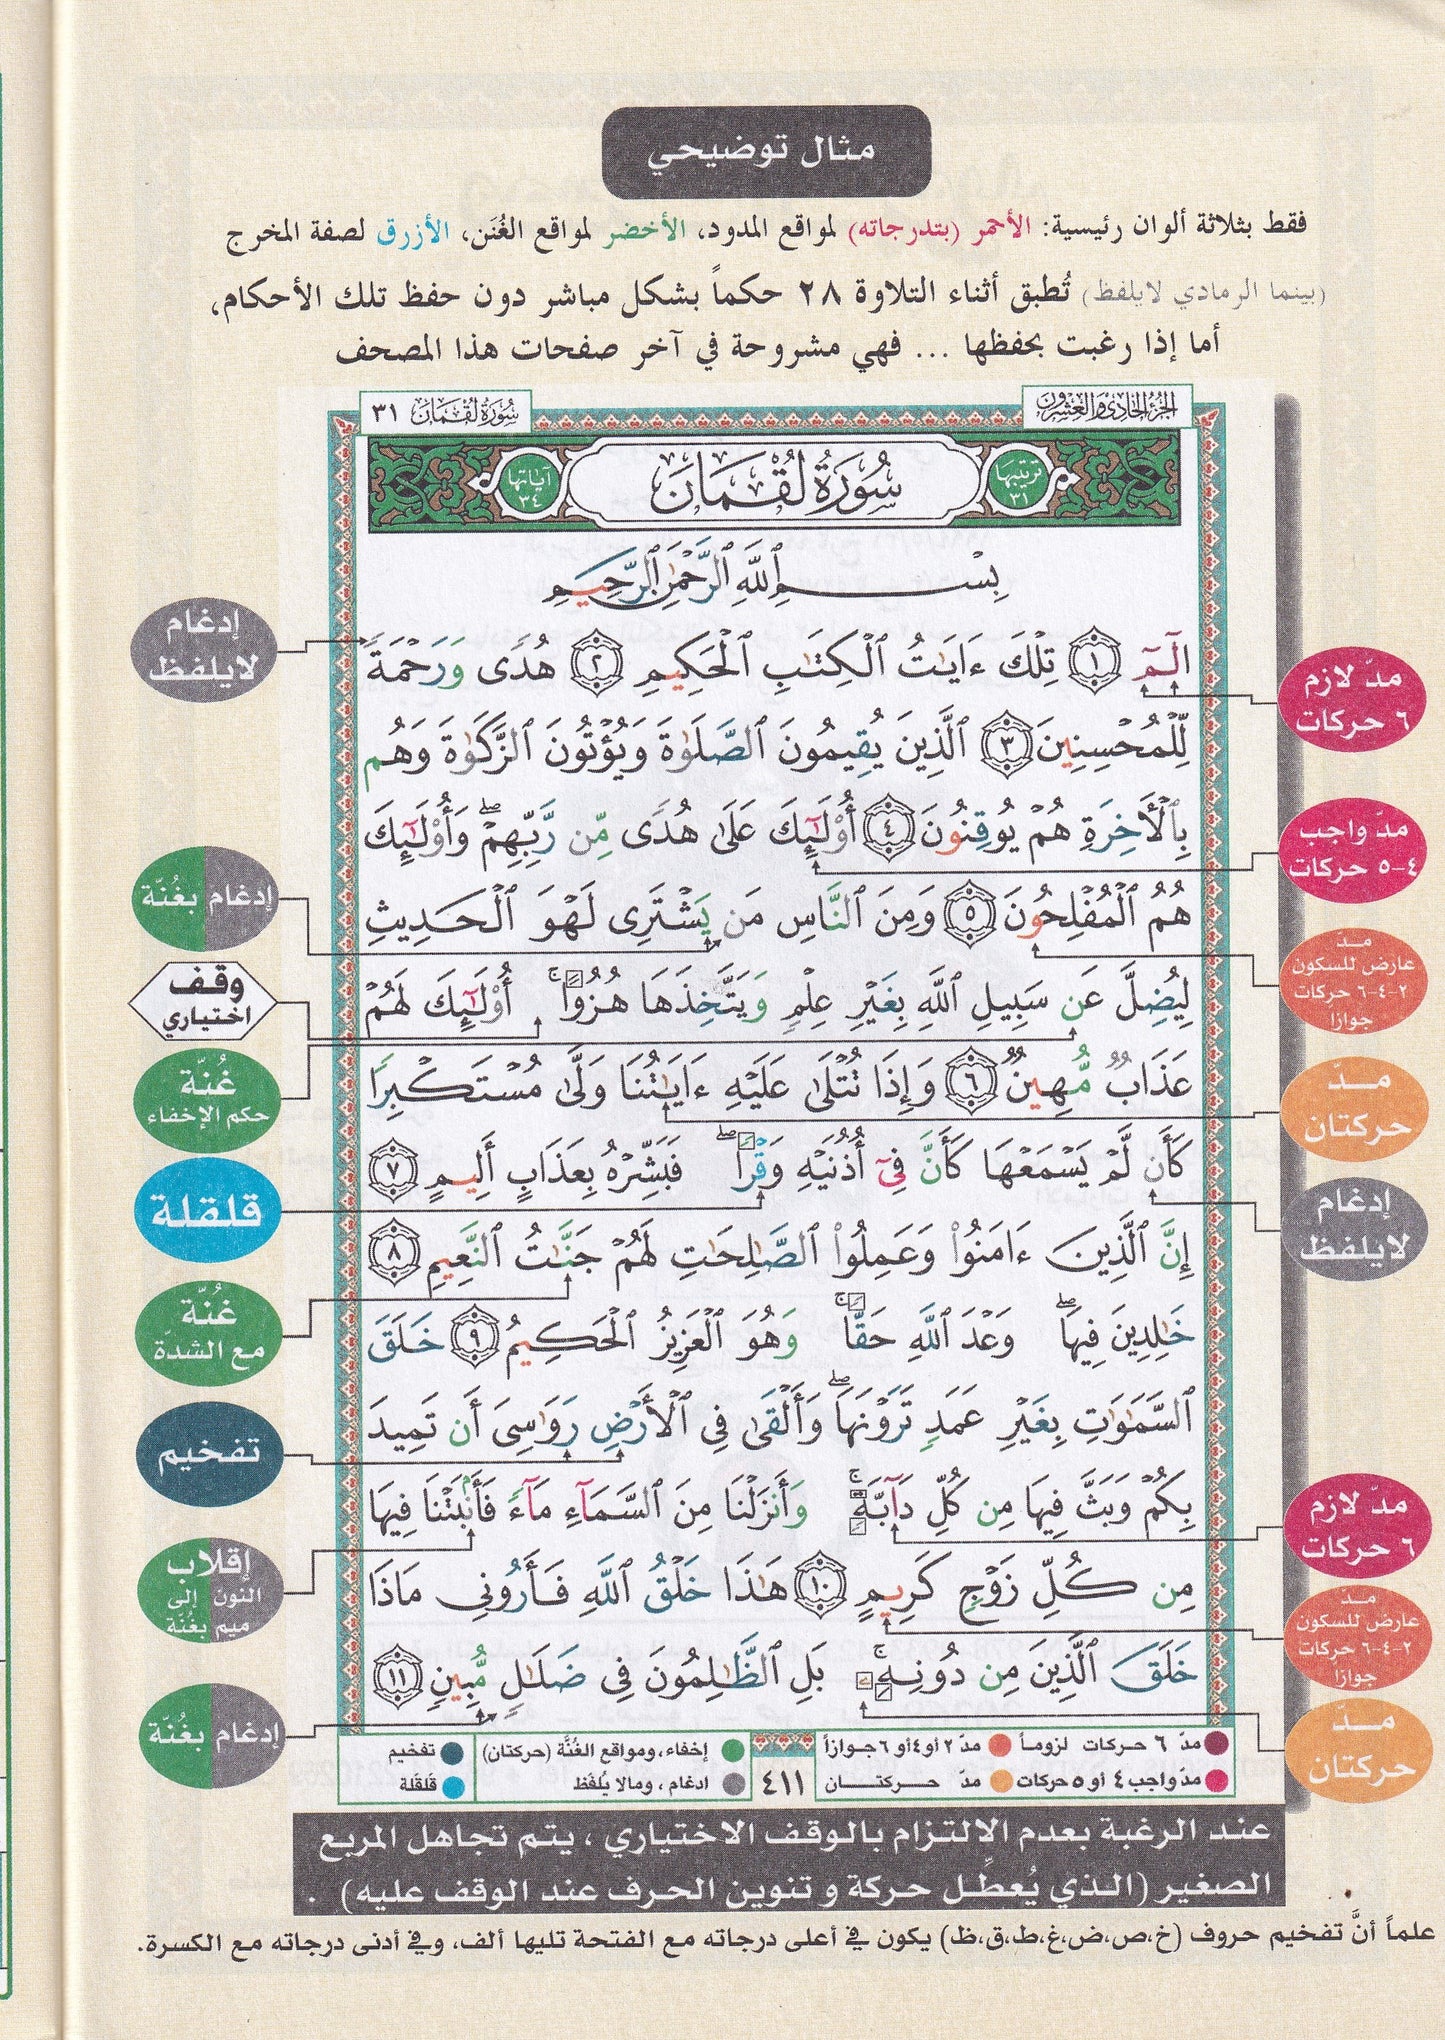 مثال توضيحي
فقط بثلاثة ألوان رئيسية: الأحمر (بتدرجاته) لمواقع المدود، الأخضر لمواقع الغُنَن، الأزرق لصفة المخرج
(بينما الرمادي لايلفظ) تُطبق أثناء التلاوة ٢٨ حكماً بشكل مباشر دون حفظ تلك الأحكام،
أما إذا رغبت بحفظها ... فهي مشروحة في آخر صفحات هذا المصحف
الجزء الحادي والعشرون
سورة لقمان ٣١
ترتيبها ٣١
سُورَةُ لُقْمَانَ
آياتها ٣٤
بِسْمِ ٱللَّهِ ٱلرَّحْمَٰنِ ٱلرَّحِيمِ
الٓمٓ ١ تِلْكَ ءَايَٰتُ ٱلْكِتَٰبِ ٱلْحَكِيمِ ٢ هُدًى وَرَحْمَةً
لِّلْمُحْسِنِينَ ٣ ٱلَّذِينَ يُقِيمُونَ ٱلصَّلَوٰةَ وَيُؤْتُونَ ٱلزَّكَوٰةَ وَهُم
بِٱلْأَخِرَةِ هُمْ يُوقِنُونَ ٤ أُو۟لَٰٓئِكَ عَلَىٰ هُدًى مِّن رَّبِّهِمْ ۖ وَأُو۟لَٰٓئِكَ
هُمُ ٱلْمُفْلِحُونَ ٥ وَمِنَ ٱلنَّاسِ مَن يَشْتَرِى لَهْوَ ٱلْحَدِيثِ
لِيُضِلَّ عَن سَبِيلِ ٱللَّهِ بِغَيْرِ عِلْمٍ وَيَتَّخِذَهَا هُزُوًا ۚ أُو۟لَٰٓئِكَ لَهُمْ
عَذَابٌ مُّهِينٌ ٦ وَإِذَا تُتْلَىٰ عَلَيْهِ ءَايَٰتُنَا وَلَّىٰ مُسْتَكْبِرًا
كَأَن لَّمْ يَسْمَعْهَا كَأَنَّ فِىٓ أُذُنَيْهِ وَقْرًا ۖ فَبَشِّرْهُ بِعَذَابٍ أَلِيمٍ ٧
إِنَّ ٱلَّذِينَ ءَامَنُوا۟ وَعَمِلُوا۟ ٱلصَّٰلِحَٰتِ لَهُمْ جَنَّٰتُ ٱلنَّعِيمِ ٨
خَٰلِدِينَ فِيهَا ۖ وَعْدَ ٱللَّهِ حَقًّا ۚ وَهُوَ ٱلْعَزِيزُ ٱلْحَكِيمُ ٩ خَلَقَ
ٱلسَّمَٰوَٰتِ بِغَيْرِ عَمَدٍ تَرَوْنَهَا ۖ وَأَلْقَىٰ فِى ٱلْأَرْضِ رَوَٰسِىَ أَن تَمِيدَ
بِكُمْ وَبَثَّ فِيهَا مِن كُلِّ دَآبَّةٍ ۚ وَأَنزَلْنَا مِنَ ٱلسَّمَآءِ مَآءً فَأَنۢبَتْنَا فِيهَا
مِن كُلِّ زَوْجٍ كَرِيمٍ ١٠ هَٰذَا خَلْقُ ٱللَّهِ فَأَرُونِى مَاذَا
خَلَقَ ٱلَّذِينَ مِن دُونِهِۦ ۚ بَلِ ٱلظَّٰلِمُونَ فِى ضَلَٰلٍ مُّبِينٍ ١١
مدّ لازم
٦ حركات
مدّ واجب
٤-٥ حركات
مدّ
عارض للسكون
٢-٤-٦ حركات
جوازا
مــدّ
حركتان
إدغام
لايلفظ
مدّ لازم
٦ حركات
مدّ
عارض للسكون
٢-٤-٦ حركات
جوازا
مــدّ
حركتان
إدغام
لايلفظ
إدغام بغُنّة
وقف
اختياري
غُنّة
حكم الإخفاء
قلقلة
غُنّة
مع الشدّة
تفخيم
إقلاب
النون إلى
ميم بغُنّة
إدغام بغُنّة
مدّ ٦ حركات لزوماً
مدّ ٢ أو ٤ أو ٦ جوازاً
مدّ واجب ٤ أو ٥ حركات
مدّ حركتــان
٤١١
إخفاء، ومواقع الغُنَّة (حركتان)
ادغام ، ومالا يُلفَظ
تفخيم
قلقلة
عند الرغبة بعدم الالتزام بالوقف الاختياري ، يتم تجاهل المربع
الصغير (الذي يُعطِّل حركة و تنوين الحرف عند الوقف عليه) .
علماً أنَّ تفخيم حروف (خ،ص،ض،غ،ط،ق،ظ) يكون في أعلى درجاته مع الفتحة تليها ألف، وفي أدنى درجاته مع الكسرة.